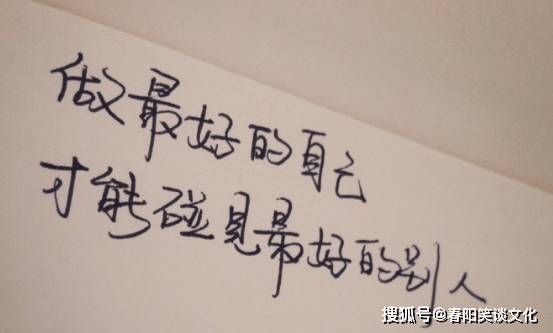 做最好的自己
才能碰见最好的别人
搜狐号@春阳笑谈文化